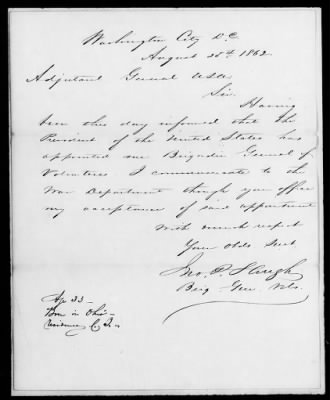 Washington City D.C
August 25th 1862.
Adjutant General USA
Sir.
Having
been this day informed that the
President of the United States has
appointed me Brigadier General of
Volunteers I communicate to the
War Department through your office
my acceptance of said appointment
With much respect
Your Obdt Servt
Jno. P. Slough
Brig. Gen. Vols.
Age 33-
Born in Ohio-
Residence